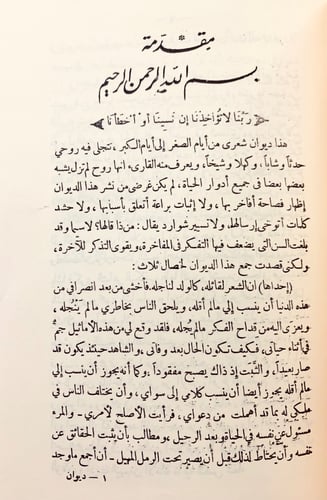 مقدمة
بسم الله الرحمن الرحيم
﴿ ربنا لا تؤاخذنا إن نسينا أو أخطأنا ﴾
هذا ديوان شعرى من أيام الصغر إلى أيام الكبر، تتجلى فيه روحي
حدثاً وشاباً، وكهلا وشيخاً، ويعرف منه القارىء انها روح لم تزل يشبه
بعضها بعضا فى جميع أدوار الحياة، لم يكن غرضى من نشر هذا الديوان
إظهار فصاحة أفاخر بها، ولا إثبات براعة أتعلق بأسبابها، ولا حشد
كلمات أتوخى إرسالها، ولا تسيير شوارد يقال: من ذا قالها؟ لاسيما وقد
بلغت السن التى يضعف فيها التفكر فى المفاخرة، ويقوى التذكر للآخرة،
ولكنى قصدت جمع هذا الديوان لخصال ثلاث:
(إحداها) ان الشعر لقائله، كالولد لناجله، فأخشى من بعد انصرافى من
هذه الدنيا أن ينسب إلى مالم أقله، ويلحق الناس بخاطرى مالم ينتجله،
ويعزى اليه من قداح الفكر مالم يجله، فلقد وقع لي من هذه الأماثيل جم
فى أثناء حياتى، فكيف تكون الحال بعد وفاتى، والشاهد حينئذ يكون قد
صار بعيداً، والتثبت إذ ذاك يصبح مفقوداً. وكما أنه يجوز أن ينسب إلى
مالم أقله يجوز أيضا أن ينسب كلامى إلى سواى، وأن يختلف الناس فى
ملكى له بما قد أهملت من دعواي، فرأيت الاصلح لأمرى - والمرء
مسئول عن نفسه فى الحياة وبعد الرحيل، ومطالب بأن يثبت الحقائق عن
نفسه وأن يحتاط لذلك قبل أن يصير تحت الرمل المهيل - أن أجمع ماوجد
١ - ديوان